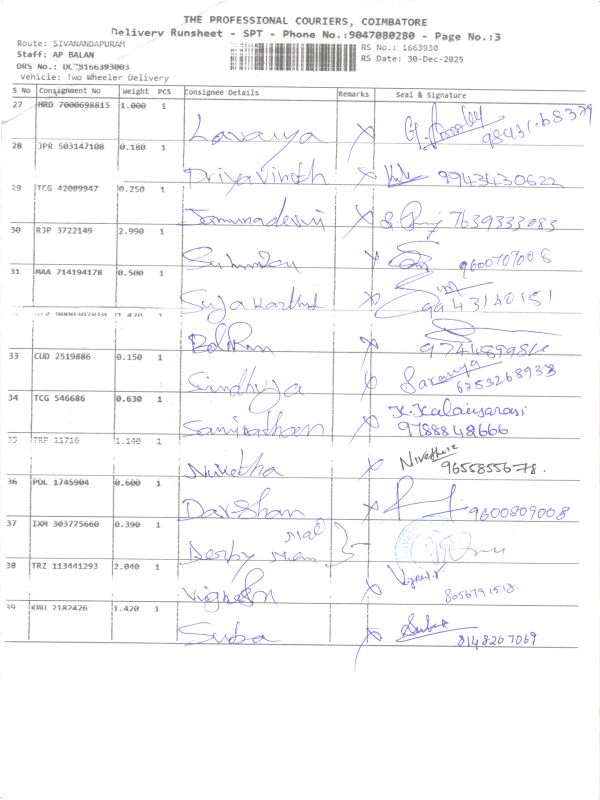 THE PROFESSIONAL COURIERS, COIMBATORE
Delivery Runsheet - SPT - Phone No.:9047080280 - Page No.:3
Route: SIVANANDAPURAM
RS No.: 1663930
Staff: AP BALAN
RS Date: 30-Dec-2025
DRS No.:
Vehicle: Two Wheeler Delivery
S No Consignment No Weight PCS Consignee Details Remarks Seal & Signature
27 MRD 7000698815 1.000 1
Lavanya
28 JPR 503147108 0.180 1
Priyavinoth 9943430622
29 TCG 42089947 0.250 1
Jamunadevi 7639333083
30 RJP 3722149 2.990 1
9600707008
31 MAA 714194178 0.500 1
Suja Karthik 9943140151
1
33 CUD 2519886 0.150 1
Sindhuja Saranya
6353268938
34 TCG 546686 0.630 1
K.Kalaiyarasi
9788848666
35 TRP 11716 1.140 1
Nivetha Nivetha
9655855678.
36 POL 1745904 0.600 1
Darshan 9600809008
37 IXM 303775660 0.390 1
38 TRZ 113441293 2.040 1
Vignesh Vignesh
39 KMU 2182426 1.420 1
Suba Suba
8148267069